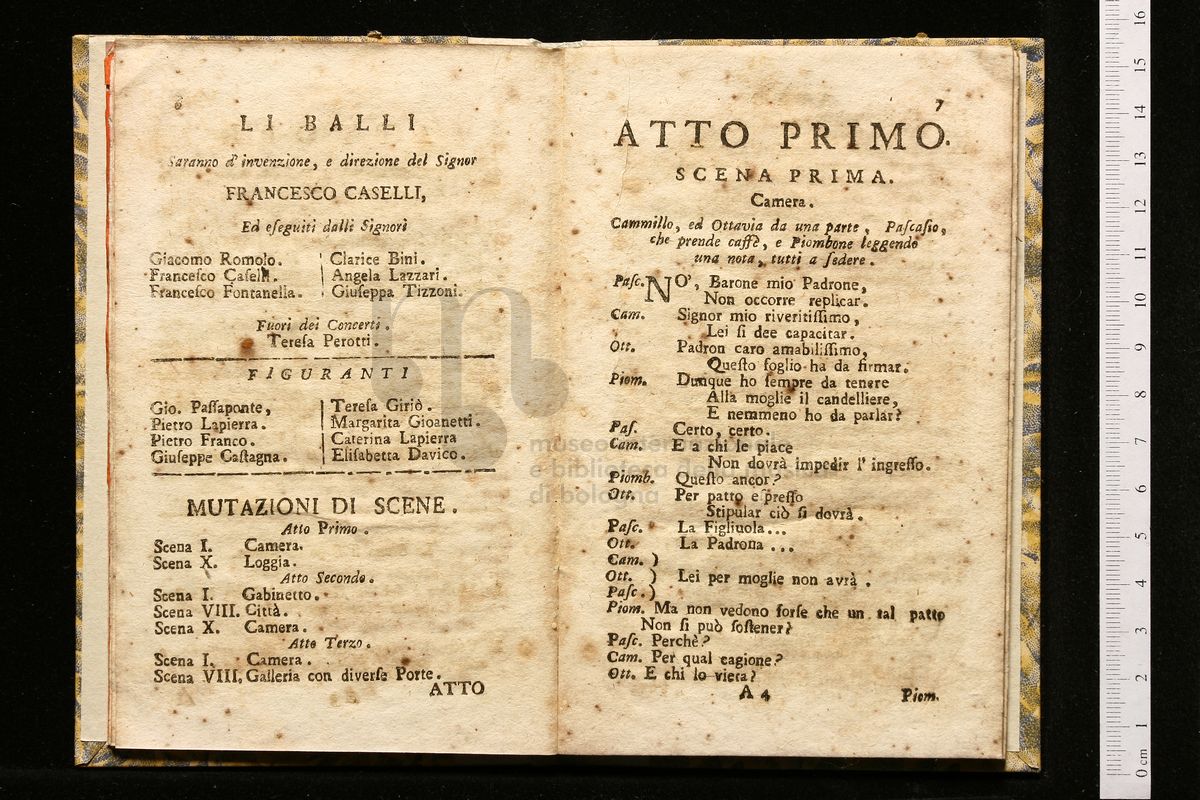 6
LI BALLI
Saranno d' invenzione, e direzione del Signor
FRANCESCO CASELLI,
Ed eſeguiti dalli Signori
Giacomo Romolo. Clarice Bini.
Franceſco Caſelli. Angela Lazzari.
Franceſco Fontanella. Giuſeppa Tizzoni.
Fuori dei Concerti.
Tereſa Perotti.
FIGURANTI
Gio. Paſſaponte, Tereſa Giriò.
Pietro Lapierra. Margarita Gioanetti.
Pietro Franco. Caterina Lapierra
Giuſeppe Caſtagna. Eliſabetta Davico.
MUTAZIONI DI SCENE.
Atto Primo.
Scena I. Camera.
Scena X. Loggia.
Atto Secondo.
Scena I. Gabinetto.
Scena VIII. Città.
Scena X. Camera.
Atto Terzo.
Scena I. Camera.
Scena VIII. Galleria con diverſe Porte.
ATTO
7
ATTO PRIMO.
SCENA PRIMA.
Camera.
Cammillo, ed Ottavia da una parte, Paſcaſio,
che prende caffè, e Piombone leggendo
una nota, tutti a ſedere.
Paſc. NO', Barone mio Padrone,
Non occorre replicar.
Cam. Signor mio riveritiſſimo,
Lei ſi dee capacitar.
Ott. Padron caro amabiliſſimo,
Queſto foglio ha da firmar.
Piom. Dunque ho ſempre da tenere
Alla moglie il candelliere,
E nemmeno ho da parlar?
Paſ. Certo, certo.
Cam. E a chi le piace
Non dovrà impedir l' ingreſſo.
Piomb. Queſto ancor?
Ott. Per patto eſpreſſo
Stipular ciò ſi dovrà.
Paſc. La Figliuola...
Ott. La Padrona ...
Cam. )
Ott. ) Lei per moglie non avrà.
Paſc. )
Piom. Ma non vedono forſe che un tal patto
Non ſi può ſoſtener?
Paſc. Perchè?
Cam. Per qual cagione?
Ott. E chi lo vieta?
A 4 Piom.
museo internazionale
e biblioteca della musica
di bologna
0 cm 1 2 3 4 5 6 7 8 9 10 11 12 13 14 15 16